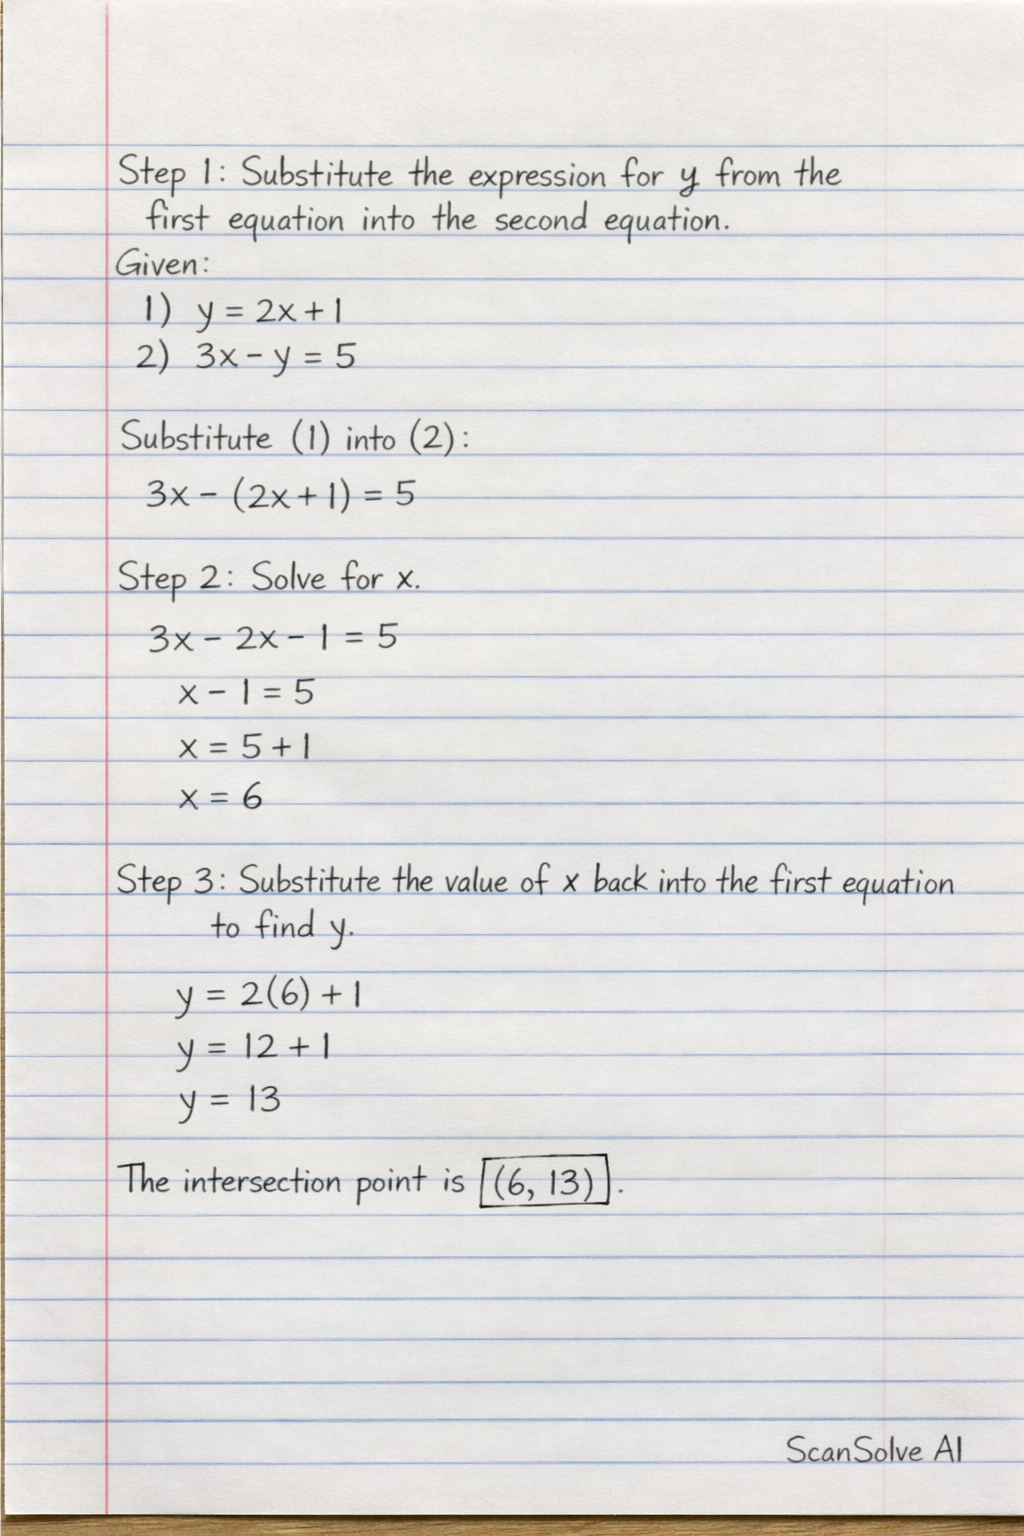 Step 1: Substitute the expression for y from the
first equation into the second equation.
Given:
1) y = 2x + 1
2) 3x - y = 5
Substitute (1) into (2):
3x - (2x + 1) = 5
Step 2: Solve for x.
3x - 2x - 1 = 5
x - 1 = 5
x = 5 + 1
x = 6
Step 3: Substitute the value of x back into the first equation
to find y.
y = 2(6) + 1
y = 12 + 1
y = 13
The intersection point is (6, 13).
ScanSolve AI